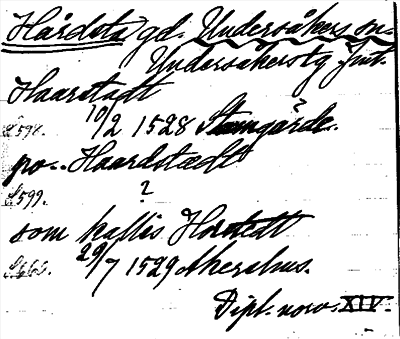 Hårdsta gd. Undersåkers sn.
Undersåkers tg. Jmt.
Haarstadt
S. 598. 10/2 1528 Stamgärde.
po - Haardstædt
S. 599. ?
som kallis Horstedt
29/7 1529 Akershus.
Dipl. norv. XIV.